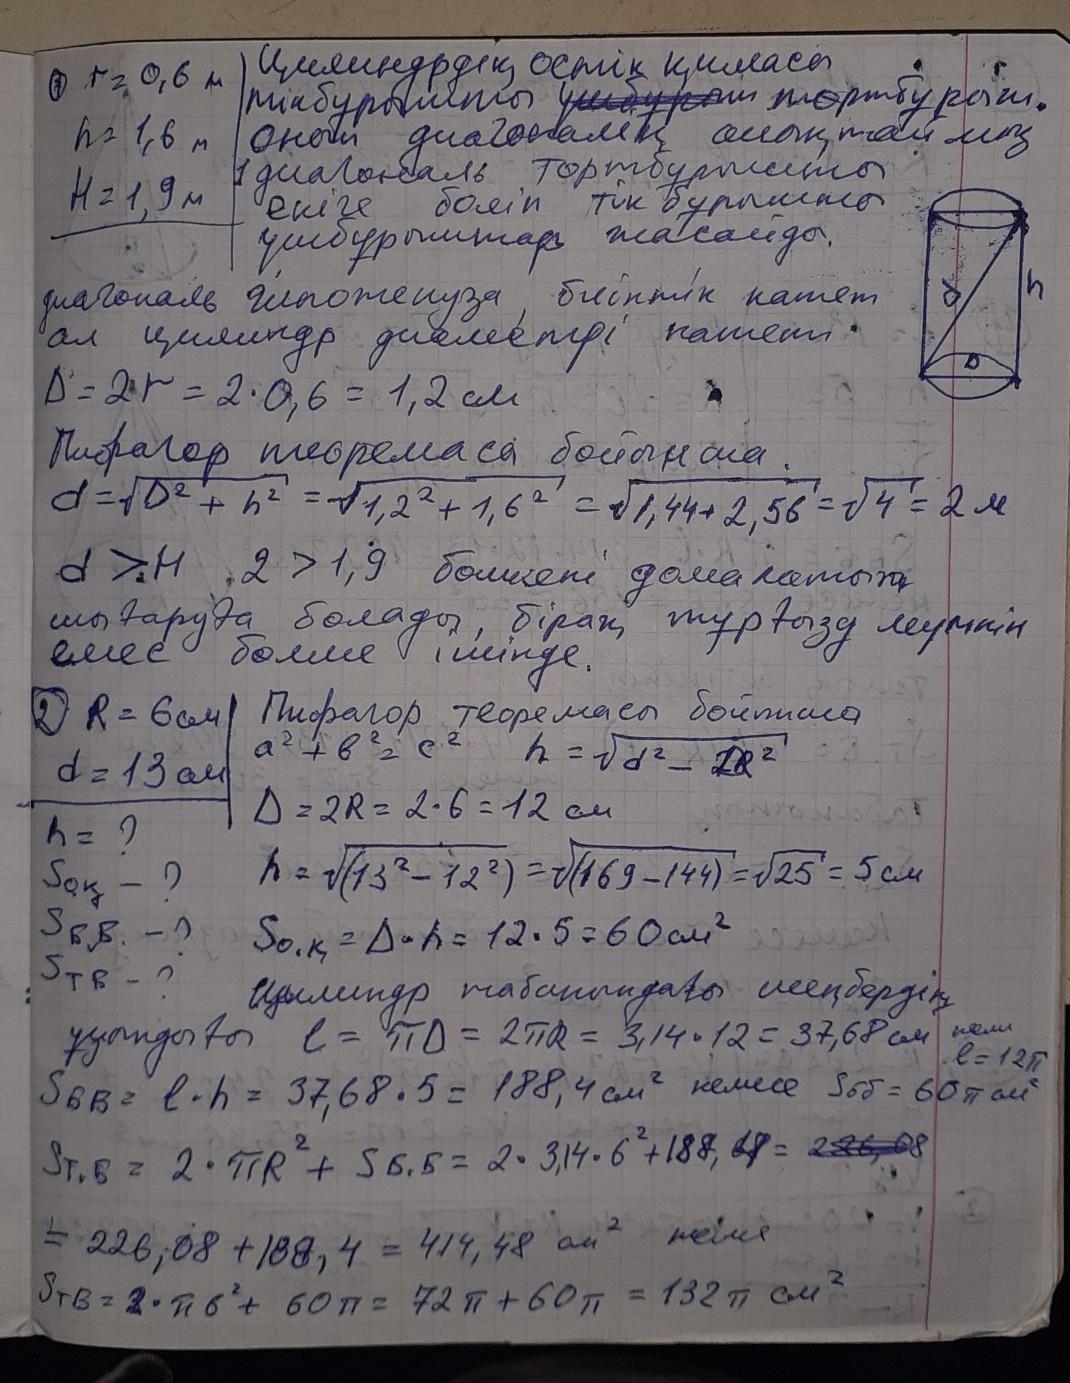 ① r = 0,6 м
h = 1,6 м
H = 1,9 м
Цилиндрдің остік қимасы
тікбұрышты төртбұрыш.
Оның диагоналін анықтаймыз
1 диагональ төртбұрышты
екіге бөліп тікбұрышты
үшбұрыштар жасайды.
диагональ гипотенуза, биіктік катет
ал цилиндр диаметрі катет.
D = 2r = 2·0,6 = 1,2 см
Пифагор теоремасы бойынша.
d = √D² + h² = √1,2² + 1,6² = √1,44 + 2,56 = √4 = 2 м
d > H 2 > 1,9 бөлмені домалатып
шығаруға болады, бірақ тұрғызу мүмкін
емес бөлме ішінде.
d h D
② R = 6 см
d = 13 см
h = ?
Sоқ – ?
Sб.б. – ?
Sтб – ?
Пифагор теоремасы бойынша
a² + b² = c² h = √d² – D²
D = 2R = 2·6 = 12 см
h = √(13² – 12²) = √(169 – 144) = √25 = 5 см
Sо.қ = D·h = 12·5 = 60 см²
Цилиндр табанындағы шеңбердің
ұзындығы l = πD = 2πR = 3,14·12 = 37,68 см
l = 12π
Sбб = l·h = 37,68·5 = 188,4 см² немесе Sбб = 60π см²
Sт.б = 2·πR² + Sб.б = 2·3,14·6² + 188,4 =
= 226,08 + 188,4 = 414,48 см²
Sтб = 2·π6² + 60π = 72π + 60π = 132π см²